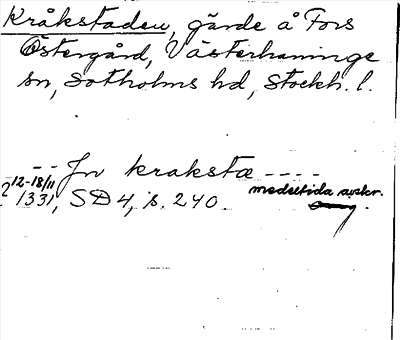 Kråkstaden, gärde å Fors
Östergård, Västerhaninge
sn, Sotholms hd, Stockh. l.
-- Jn krakstæ ----
12-18/11
? 1331, SD 4, s. 240. medeltida avskr.